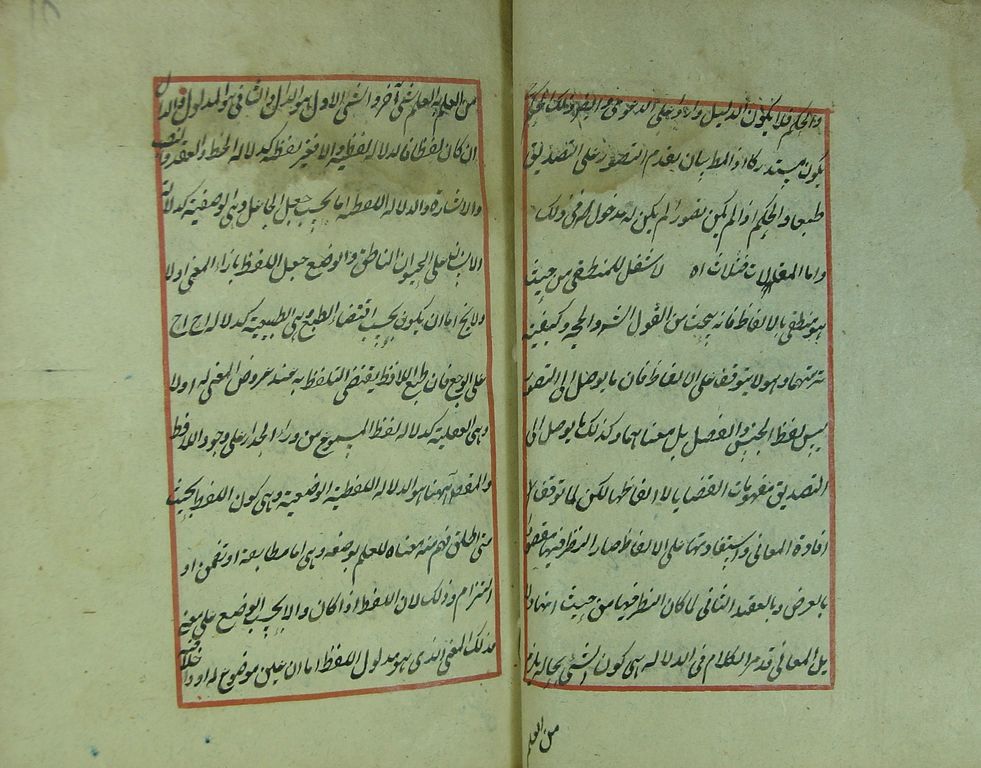 والحكم فلا يكون الدليل واردا على الدعوى
يكون مستدركا اذ المط بيان تقدم التصور على التصديق
طبعا والحكم اذا لم يكن تصورا لم يكن له مدخل في ذلك
واما المقالات فثلاث اه لا شغل للمنطقي من حيث
هو منطقي بالالفاظ فانه يبحث عن القول الشارح والحجة وكيفية
ترتيبهما وهو لا يتوقف على الالفاظ فان ما يوصل الى التصور
ليس لفظ الجنس والفصل بل معناهما وكذلك ما يوصل الى
التصديق مفهومات القضايا لا الفاظها لكن لما توقف
افادة المعاني واستفادتها على الالفاظ صار النظر فيها مقصودا
بالعرض وبالقصد الثاني لما كان النظر فيها من حيث انها
المعاني قدم الكلام في الدلالة هي كون الشئ بحالة يلزم
من العلم
من العلم به العلم بشئ آخر والشئ الاول هو الدال والثاني هو المدلول والدال
ان كان لفظا فالدلالة لفظية والا فغير لفظية كدلالة الخط والعقد والنصب
والاشارة والدلالة اللفظية اما بحسب جعل الجاعل وهي الوضعية كدلالة
الانسان على الحيوان الناطق والوضع جعل اللفظ بازاء المعنى اولا
ولا يخ اما ان يكون بحسب اقتضاء الطبع وهي الطبيعية كدلالة اح اح
على الوجع فان طبع اللافظ يقتضي التلفظ به عند عروض المعنى له اولا
وهي العقلية كدلالة لفظ المسموع من وراء الجدار على وجود اللافظ
والمقصود ههنا هو الدلالة اللفظية الوضعية وهي كون اللفظ بحيث
متى اطلق فهم منه معناه للعلم بوضعه وهي اما مطابقة او تضمن او
التزام وذلك لان اللفظ اذا كان دالا بحسب الوضع على معنى
فذلك المعنى الذي هو مدلول اللفظ اما ان عين موضوع له او داخلا فيه